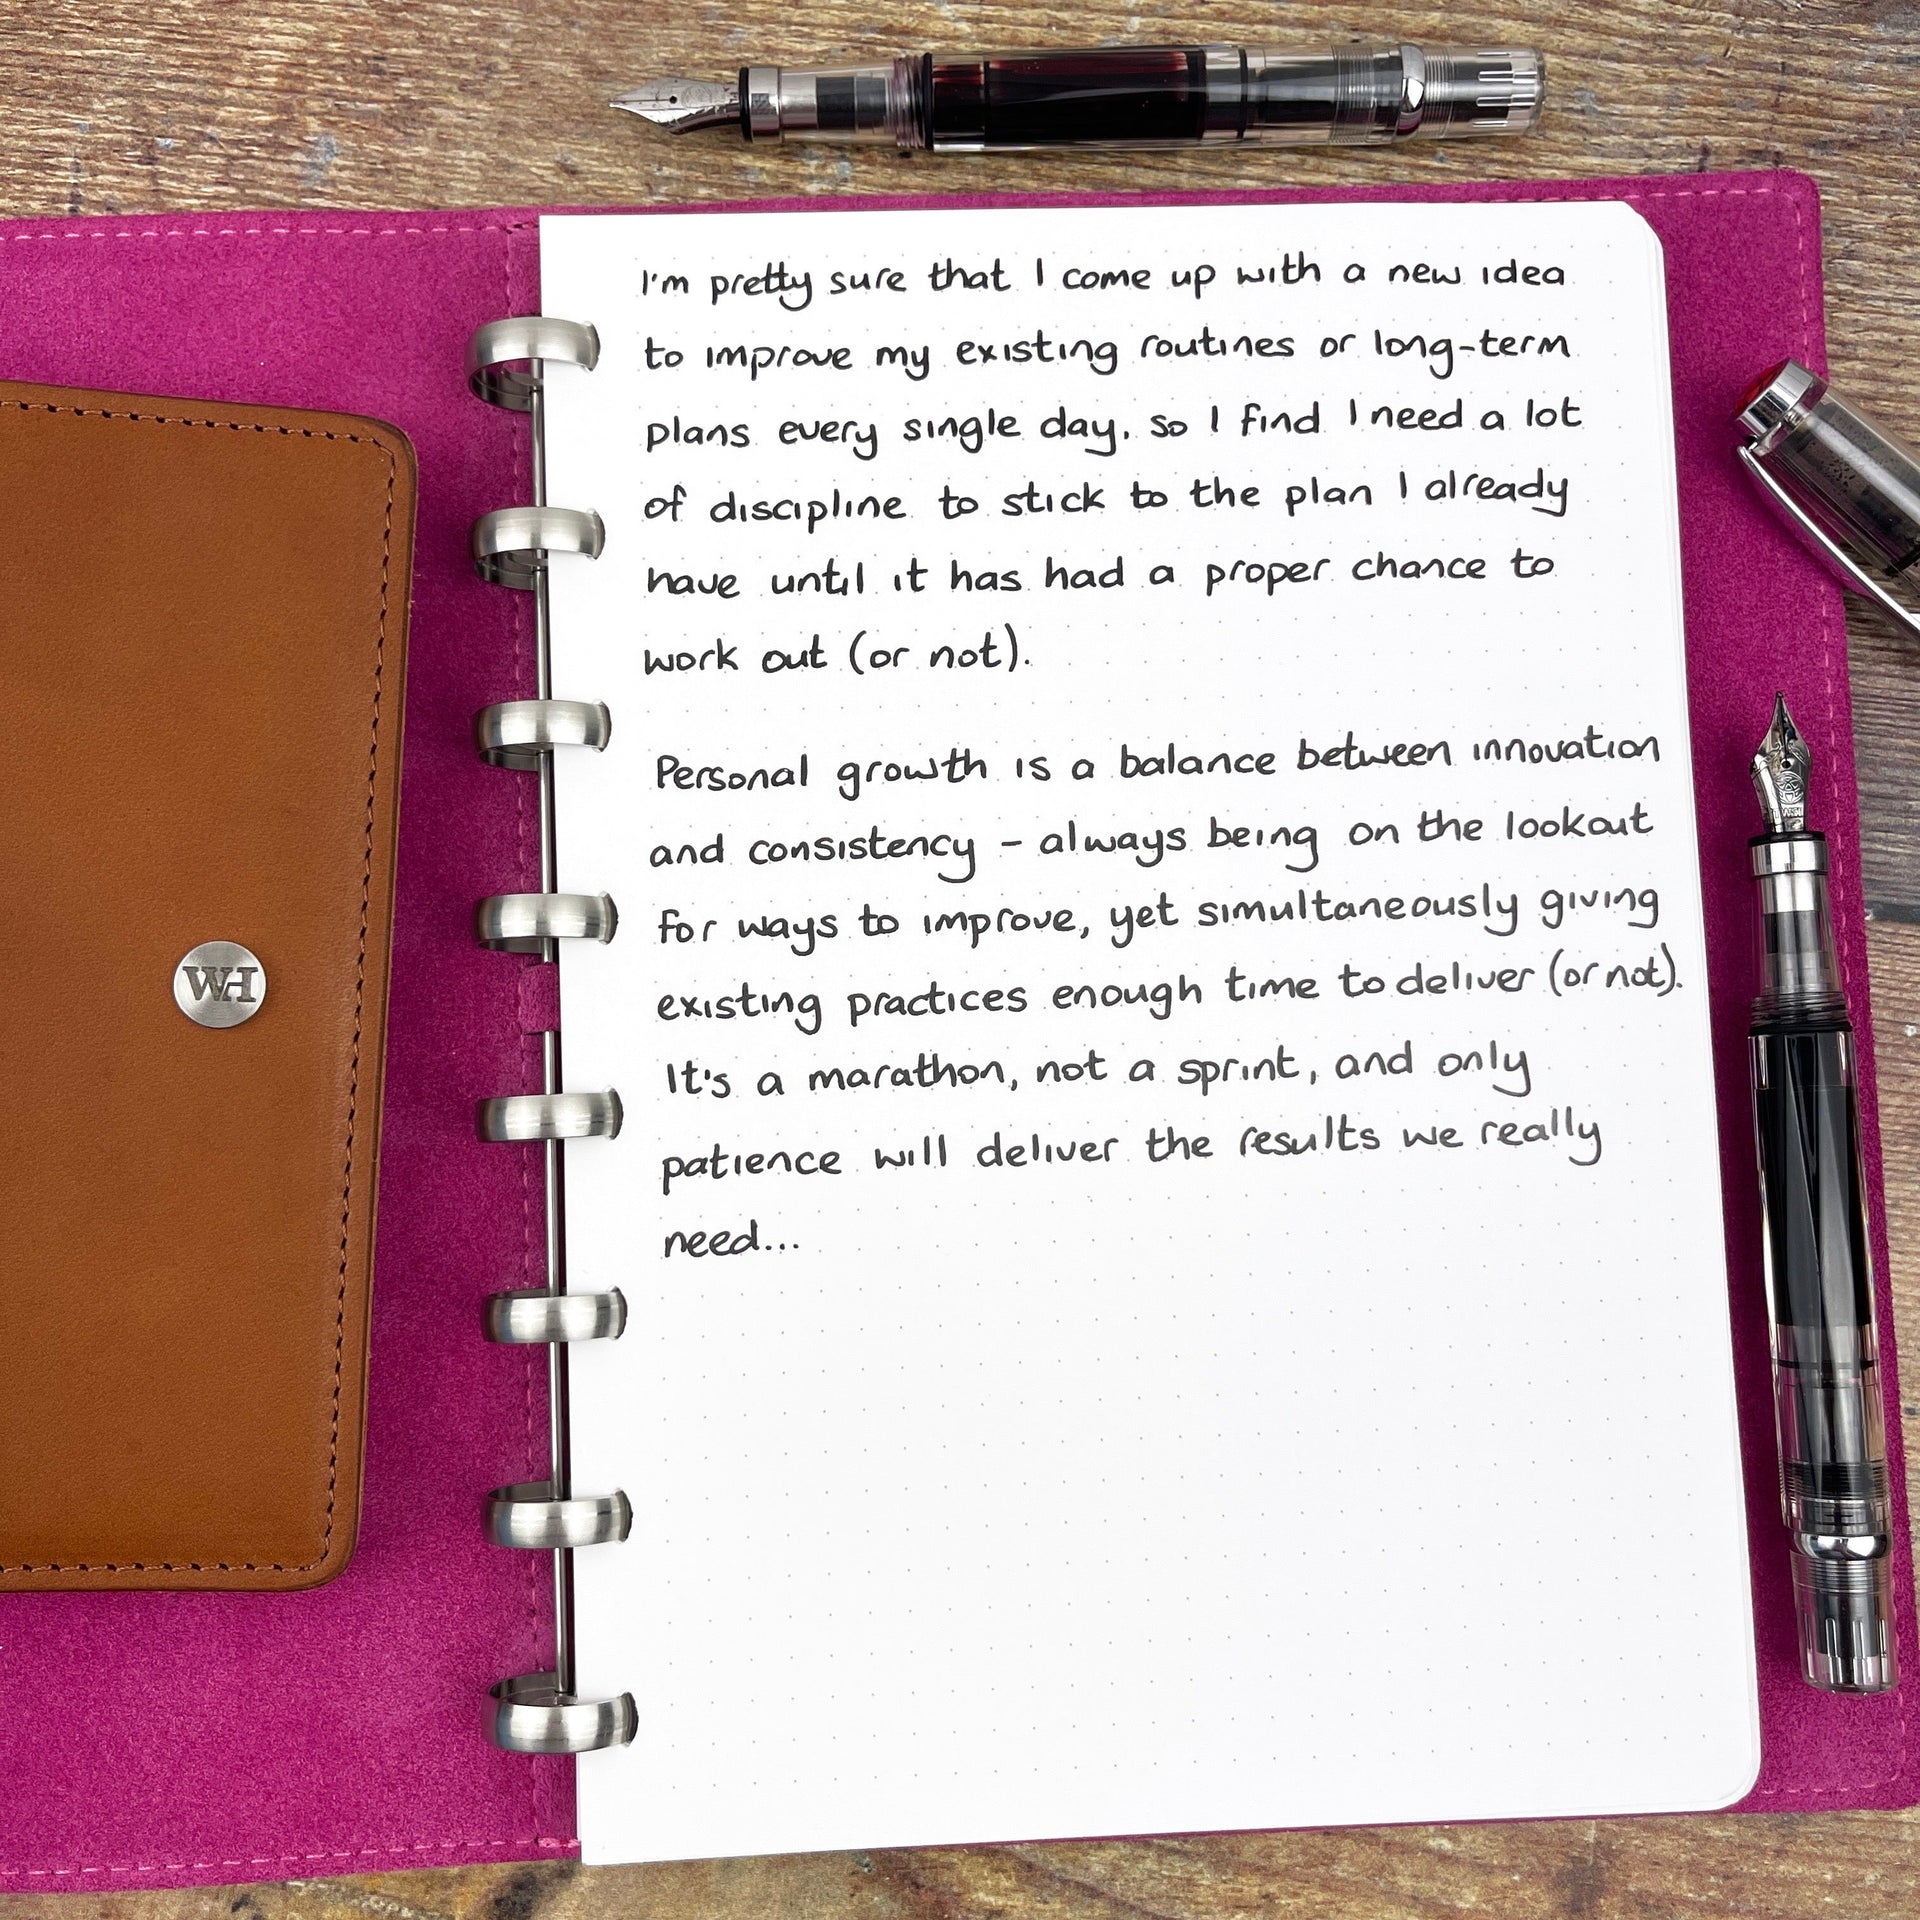 I'm pretty sure that I come up with a new idea
to improve my existing routines or long-term
plans every single day, so I find I need a lot
of discipline to stick to the plan I already
have until it has had a proper chance to
work out (or not).
Personal growth is a balance between innovation
and consistency – always being on the lookout
for ways to improve, yet simultaneously giving
existing practices enough time to deliver (or not).
It's a marathon, not a sprint, and only
patience will deliver the results we really
need...
WH